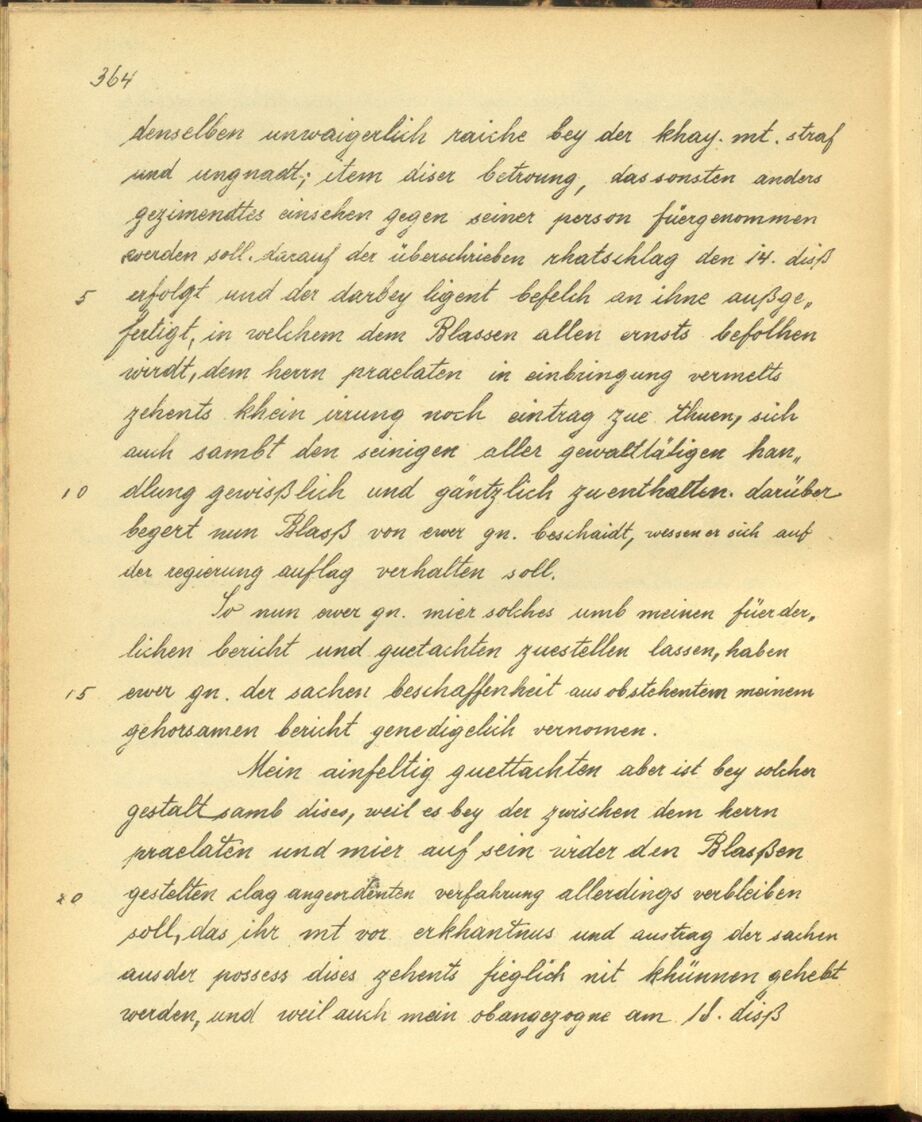 364
denselben unwaigerlich raiche bey der khay. mt. straf
und ungnadt; item diser betroung, das sonsten anders
gezimendtes einsehen gegen seiner person füergenommen
werden soll. darauf der überschrieben rhatschlag den 14. diß
5 erfolgt und der darbey ligent befelch an ihne außge„
fertigt, in welchem dem Blassen allen ernsts befolhen
wirdt, dem herrn praelaten in einbringung vermelts
zehents khein irrung noch eintrag zue thuen, sich
auch sambt den seinigen aller gewalttätigen han„
10 dlung gewißlich und gäntzlich zuenthalten. darüber
begert nun Blasß von ewer gn. beschaidt, wessen er sich auf
der regierung auflag verhalten soll.
So nun ewer gn. mier solches umb meinen füerder„
lichen bericht und guetachten zuestellen lassen, haben
15 ewer gn. der sachen beschaffenheit aus obstehentem meinem
gehorsamen bericht genedigelich vernomen.
Mein ainfeltig guettachten aber ist bey solcher
gestalt samb dises, weil es bey der zwischen dem herrn
praelaten und mier auf sein wider den Blasßen
20 gestelten clag angeordenten verfahrung allerdings verbleiben
soll, das ihr mt vor erkhantnus und austrag der sachen
aus der possess dises zehents fieglich nit khünnen gehebt
werden, und weil auch mein obangezogne am 18. disß